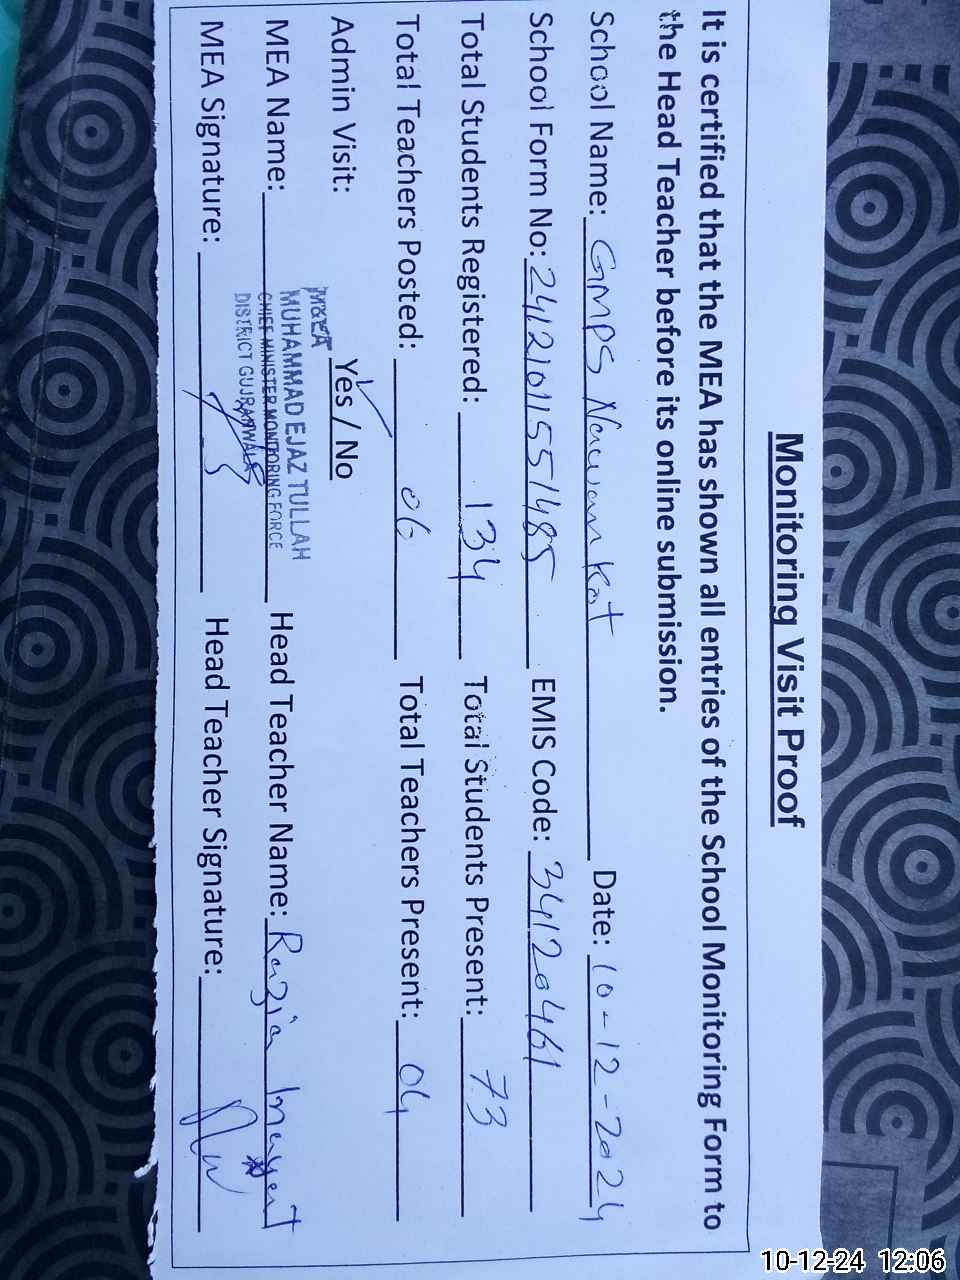 Monitoring Visit Proof
It is certified that the MEA has shown all entries of the School Monitoring Form to
the Head Teacher before its online submission.
School Name: GMPS Nawan Kot Date: 10-12-2024
School Form No: 24121011551485 EMIS Code: 34120461
Total Students Registered: 134 Total Students Present: 73
Total Teachers Posted: 06 Total Teachers Present: 04
Admin Visit: Yes / No
M&EA
MUHAMMAD EJAZ TULLAH
MEA Name: CHIEF MINISTER MONITORING FORCE Head Teacher Name: Razia
DISTRICT GUJRANWALA
MEA Signature: Head Teacher Signature:
10-12-24 12:06